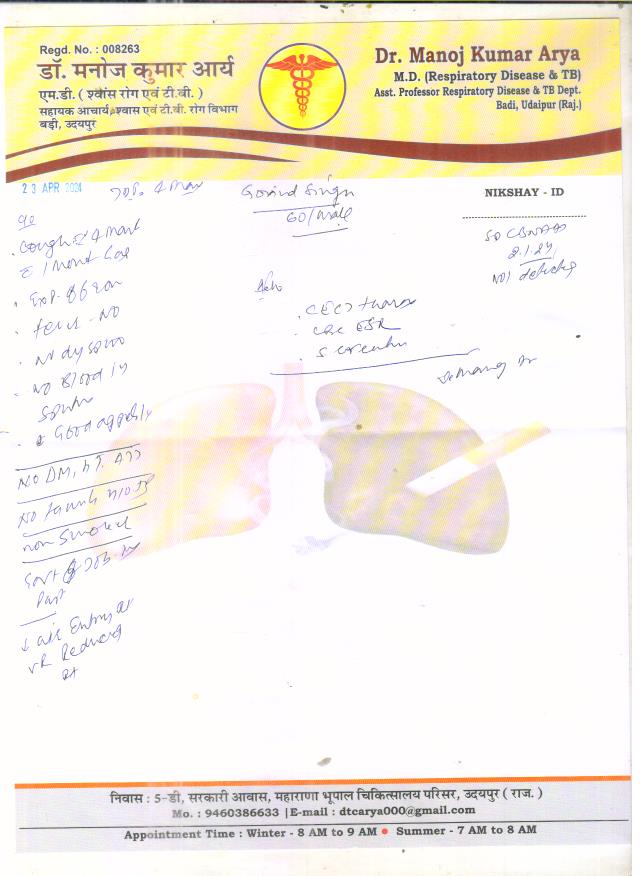 Regd. No. : 008263
डॉ. मनोज कुमार आर्य
एम.डी. ( श्वांस रोग एवं टी.बी. )
सहायक आचार्य श्वास एवं टी.बी. रोग विभाग
बड़ी, उदयपुर
Dr. Manoj Kumar Arya
M.D. (Respiratory Disease & TB)
Asst. Professor Respiratory Disease & TB Dept.
Badi, Udaipur (Raj.)
23 APR 2024
Govind Singh
60/male
NIKSHAY - ID
2.1.24
Not
c/o
. Cough
. Exp.
. fever - NO
. no
. no Blood in
Good
NO DM,
NO family h/o
non smoker
Govt Job in
Past
↓ air Entry
VR Reduced
Rt
Adv
. CECT thorax
. CBC ESR
. S creatinine
निवास : 5-डी, सरकारी आवास, महाराणा भूपाल चिकित्सालय परिसर, उदयपुर ( राज. )
Mo. : 9460386633 | E-mail : dtcarya000@gmail.com
Appointment Time : Winter - 8 AM to 9 AM ● Summer - 7 AM to 8 AM